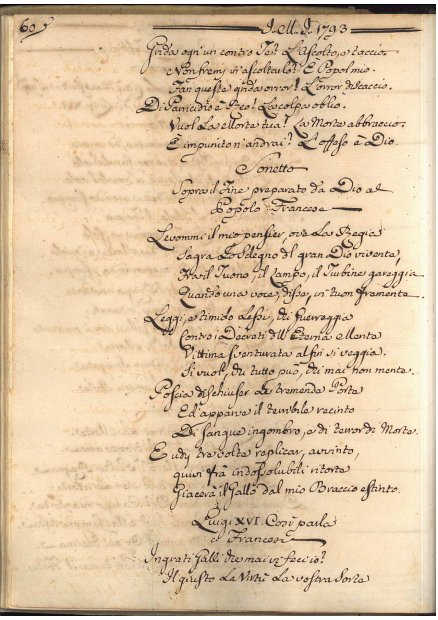 60
J. M. J. 1793
Grida ogn'un contro Te? L'ascolto, e taccio.
Non fremi in ascoltarlo? È Popol mio.
Fan queste grida orror? L'orror discaccio.
Di Parricidio è Reo? La colpa oblio.
Vuol La Morte tua? La Morte abbraccio.
E impunito n'andrai? L'offeso è Dio.
Sonetto
Sopra il Fine preparato da Dio al
Popolo Francese
Levommi il mio pensier, ove La Regia
Sagra Lo Sdegno del gran Dio
Fra il Tuono, il Lampo, il Turbine gareggia
Quando una voce, disse, in tuon fremente.
Leggi, e timido Lessi,
Contro i Decreti dell'Eterna Mente
Vittima sventurata alfin si veggia.
Si vuol, chi tutto può, chi mai non mente.
Poscia dischiuser La tremenda Porta
Ed apparve il terribile recinto
Di sangue ingombro, e di terror di Morte.
E udij tre volte replicar, avvinto,
quivi fra indissolubili ritorte
Giacerà il Gallo dal mio Braccio estinto.
Luigi XVI. Così parla
a Francesi
Ingrati Galli che mai vi feci io?
Il giusto La Virtù La vostra Sorte